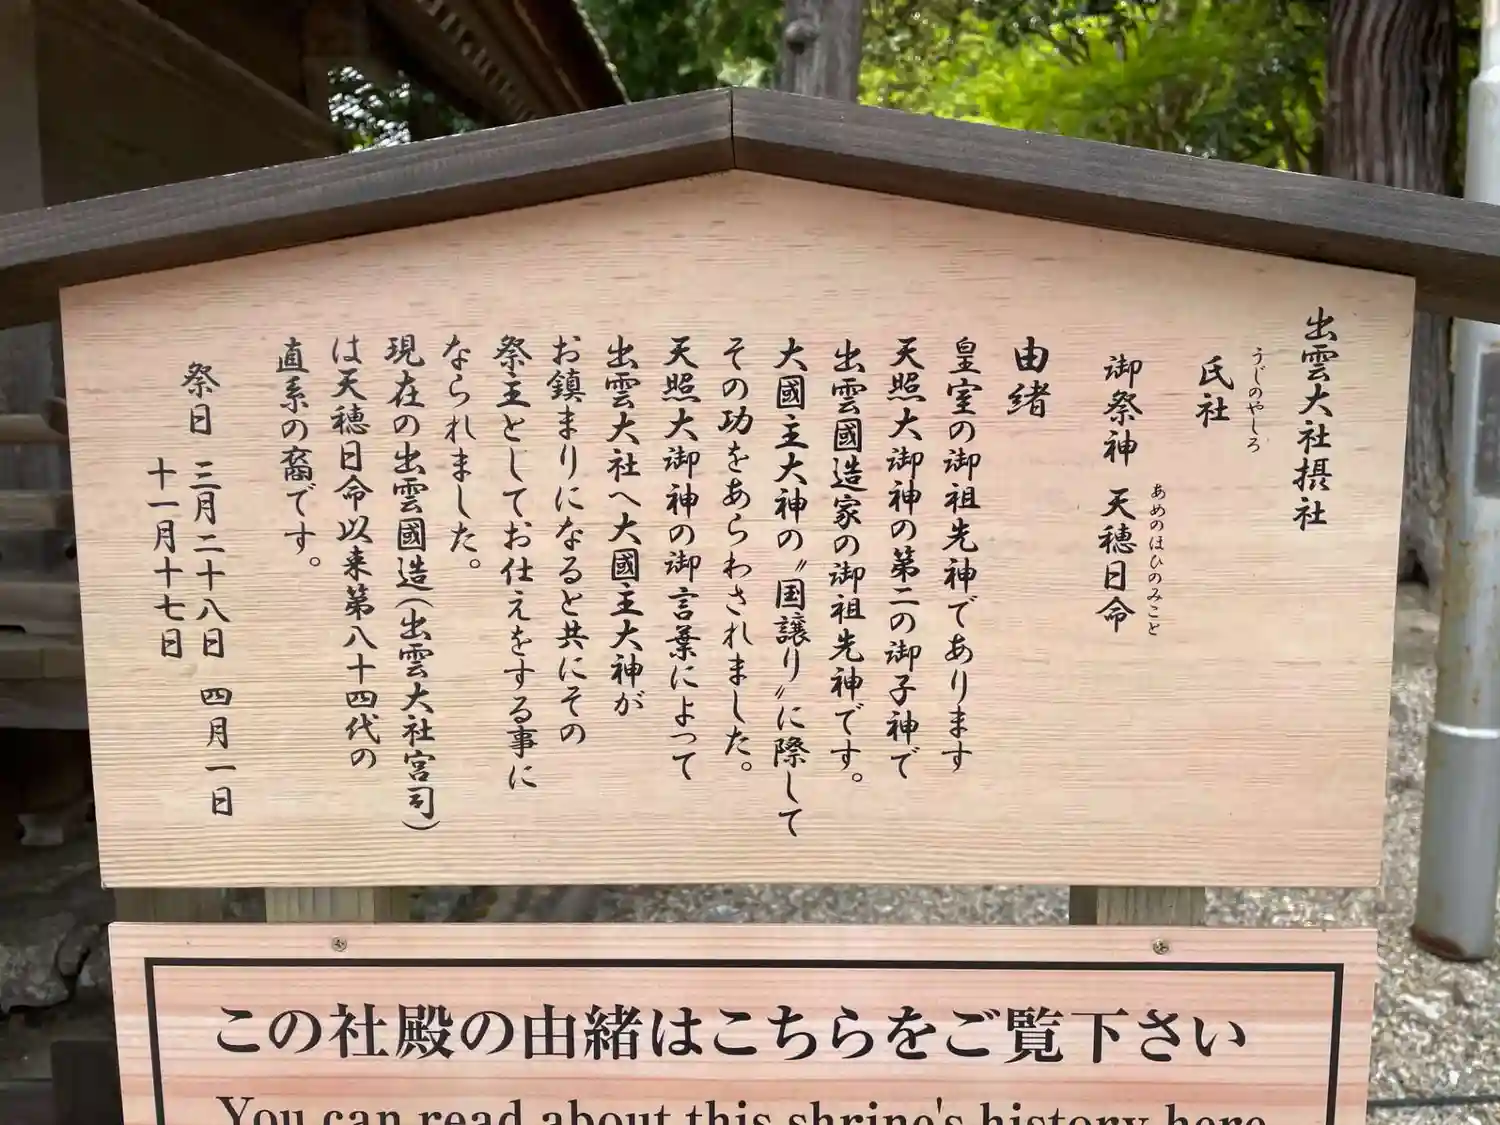 出雲大社摂社
うじのやしろ
氏社
あめのほひのみこと
御祭神 天穂日命
由緒
皇室の御祖先神であります
天照大御神の第二の御子神で
出雲國造家の御祖先神です。
大國主大神の〝国譲り〟に際して
その功をあらわされました。
天照大御神の御言葉によって
出雲大社へ大國主大神が
お鎮まりになると共にその
祭主としてお仕えをする事に
なられました。
現在の出雲國造(出雲大社宮司)
は天穂日命以来第八十四代の
直系の裔です。
祭日 三月二十八日 四月一日
十一月十七日
この社殿の由緒はこちらをご覧下さい
You can read about this shrine's history here